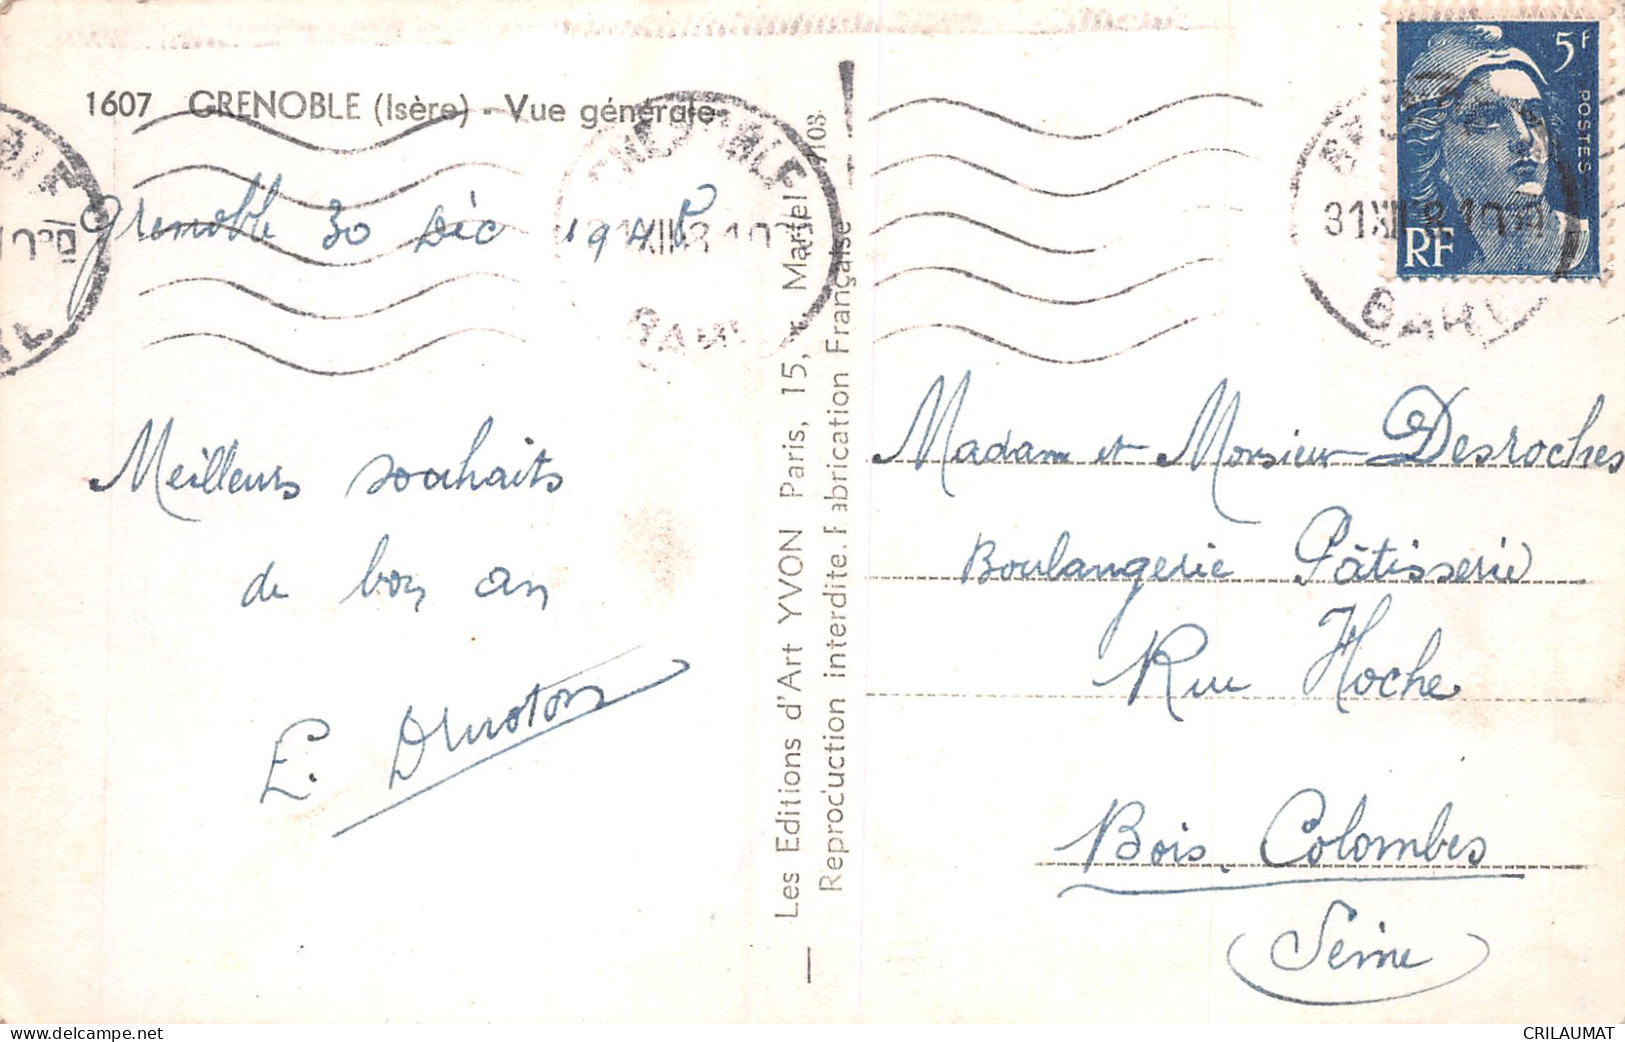 1607 GRENOBLE (Isère) - Vue générale
Grenoble 30 Déc 1948
Meilleurs souhaits
de bon an
E.
Les Editions d'Art YVON Paris, 15, r. Martel
Reproduction interdite. Fabrication Française
5F
POSTES
RF
31 XII 8
Madam et Monsieur Desroches
Boulangerie Pâtisserie
Rue Hoche
Bois Colombes
(Seine)
www.delcampe.net
CRILAUMAT